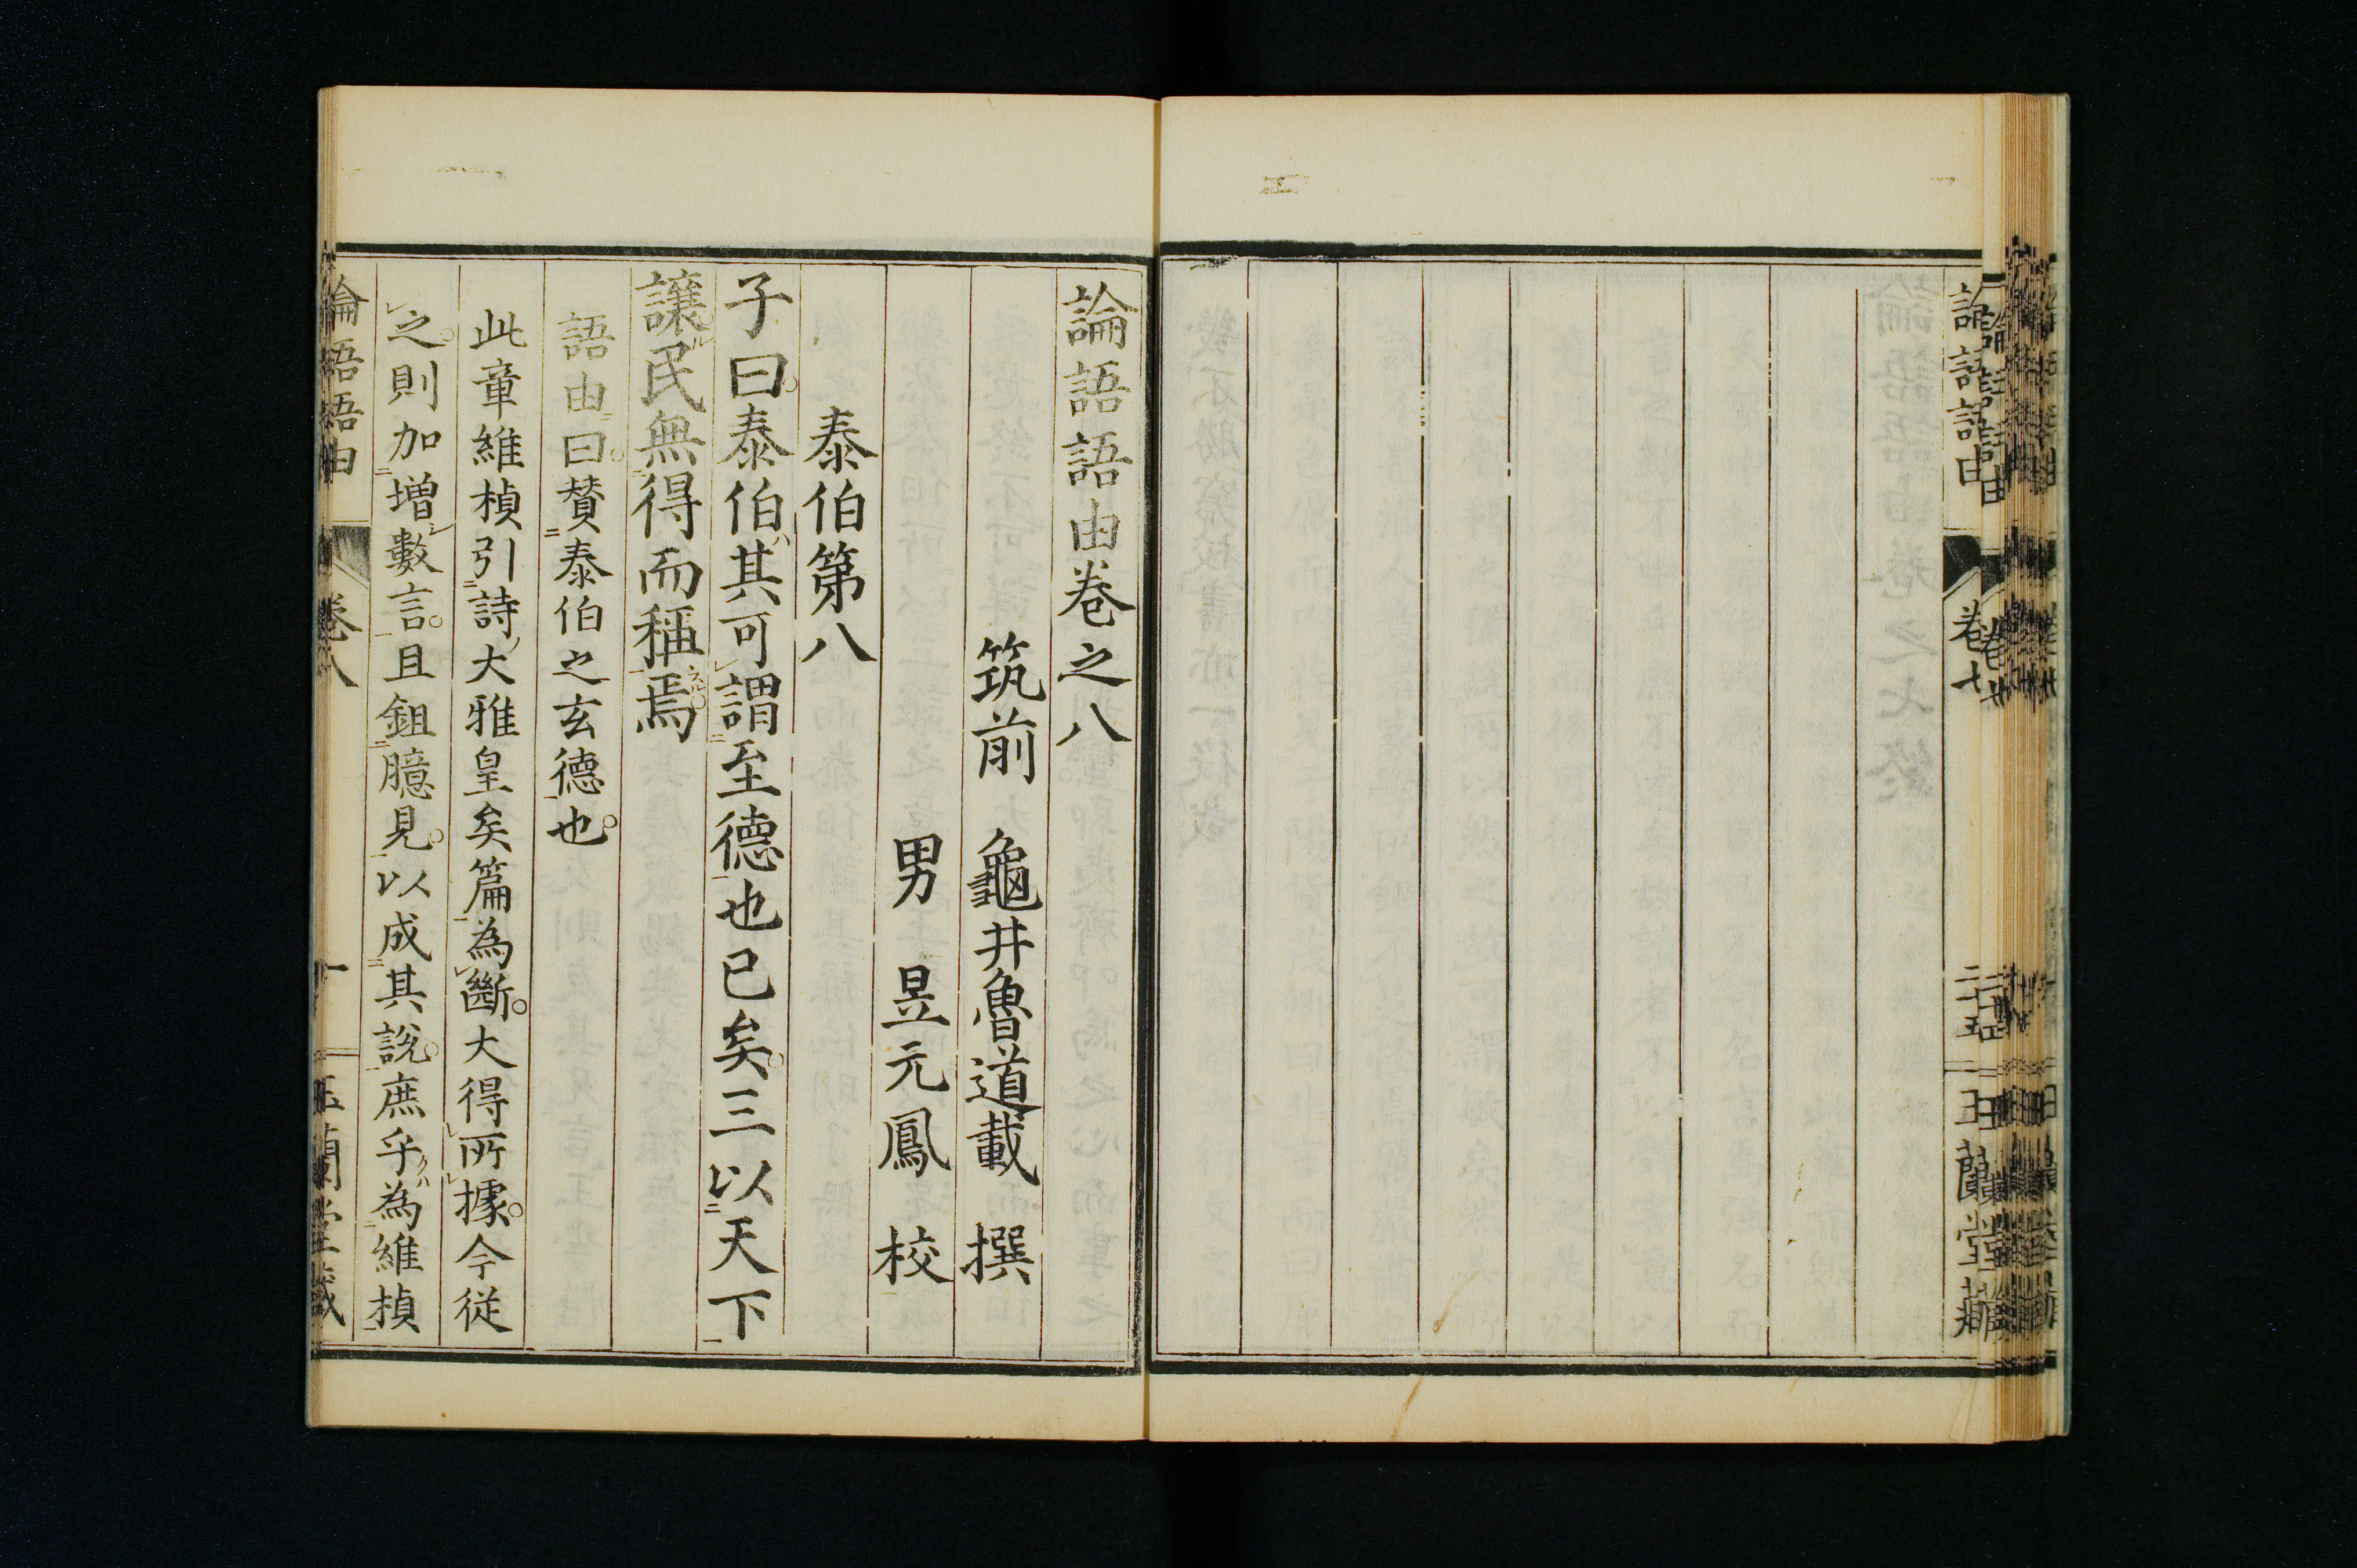 論語語由卷之八
筑前 龜井魯道載 撰
男 昱元鳳 校
泰伯第八
子曰泰伯其可謂至德也已矣三以天下
讓民無得而稱焉
語由曰賛泰伯之玄德也
此章維楨引詩大雅皇矣篇為斷大得所據今從
之則加增數言且鉏臆見以成其說庶乎為維楨
論語語由 卷八 一 玉蘭堂藏